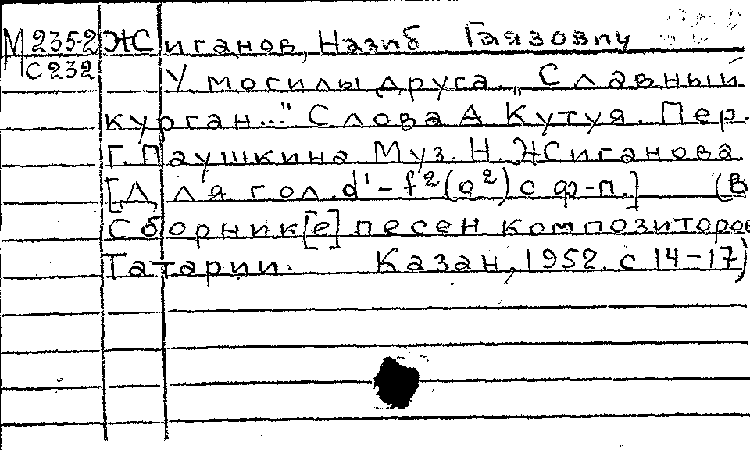 М 235-2 Жиганов, Назиб Гаязович
С 232 У могилы друга. „Славный
курган..." Слова А Кутуя. Пер.
Г. Паушкина Муз. Н. Жиганова.
[Для гол. d¹-f²(a²) с ф-п.] (В
Сборник[е] песен композиторов
Татарии. Казан, 1952. с 14-17)